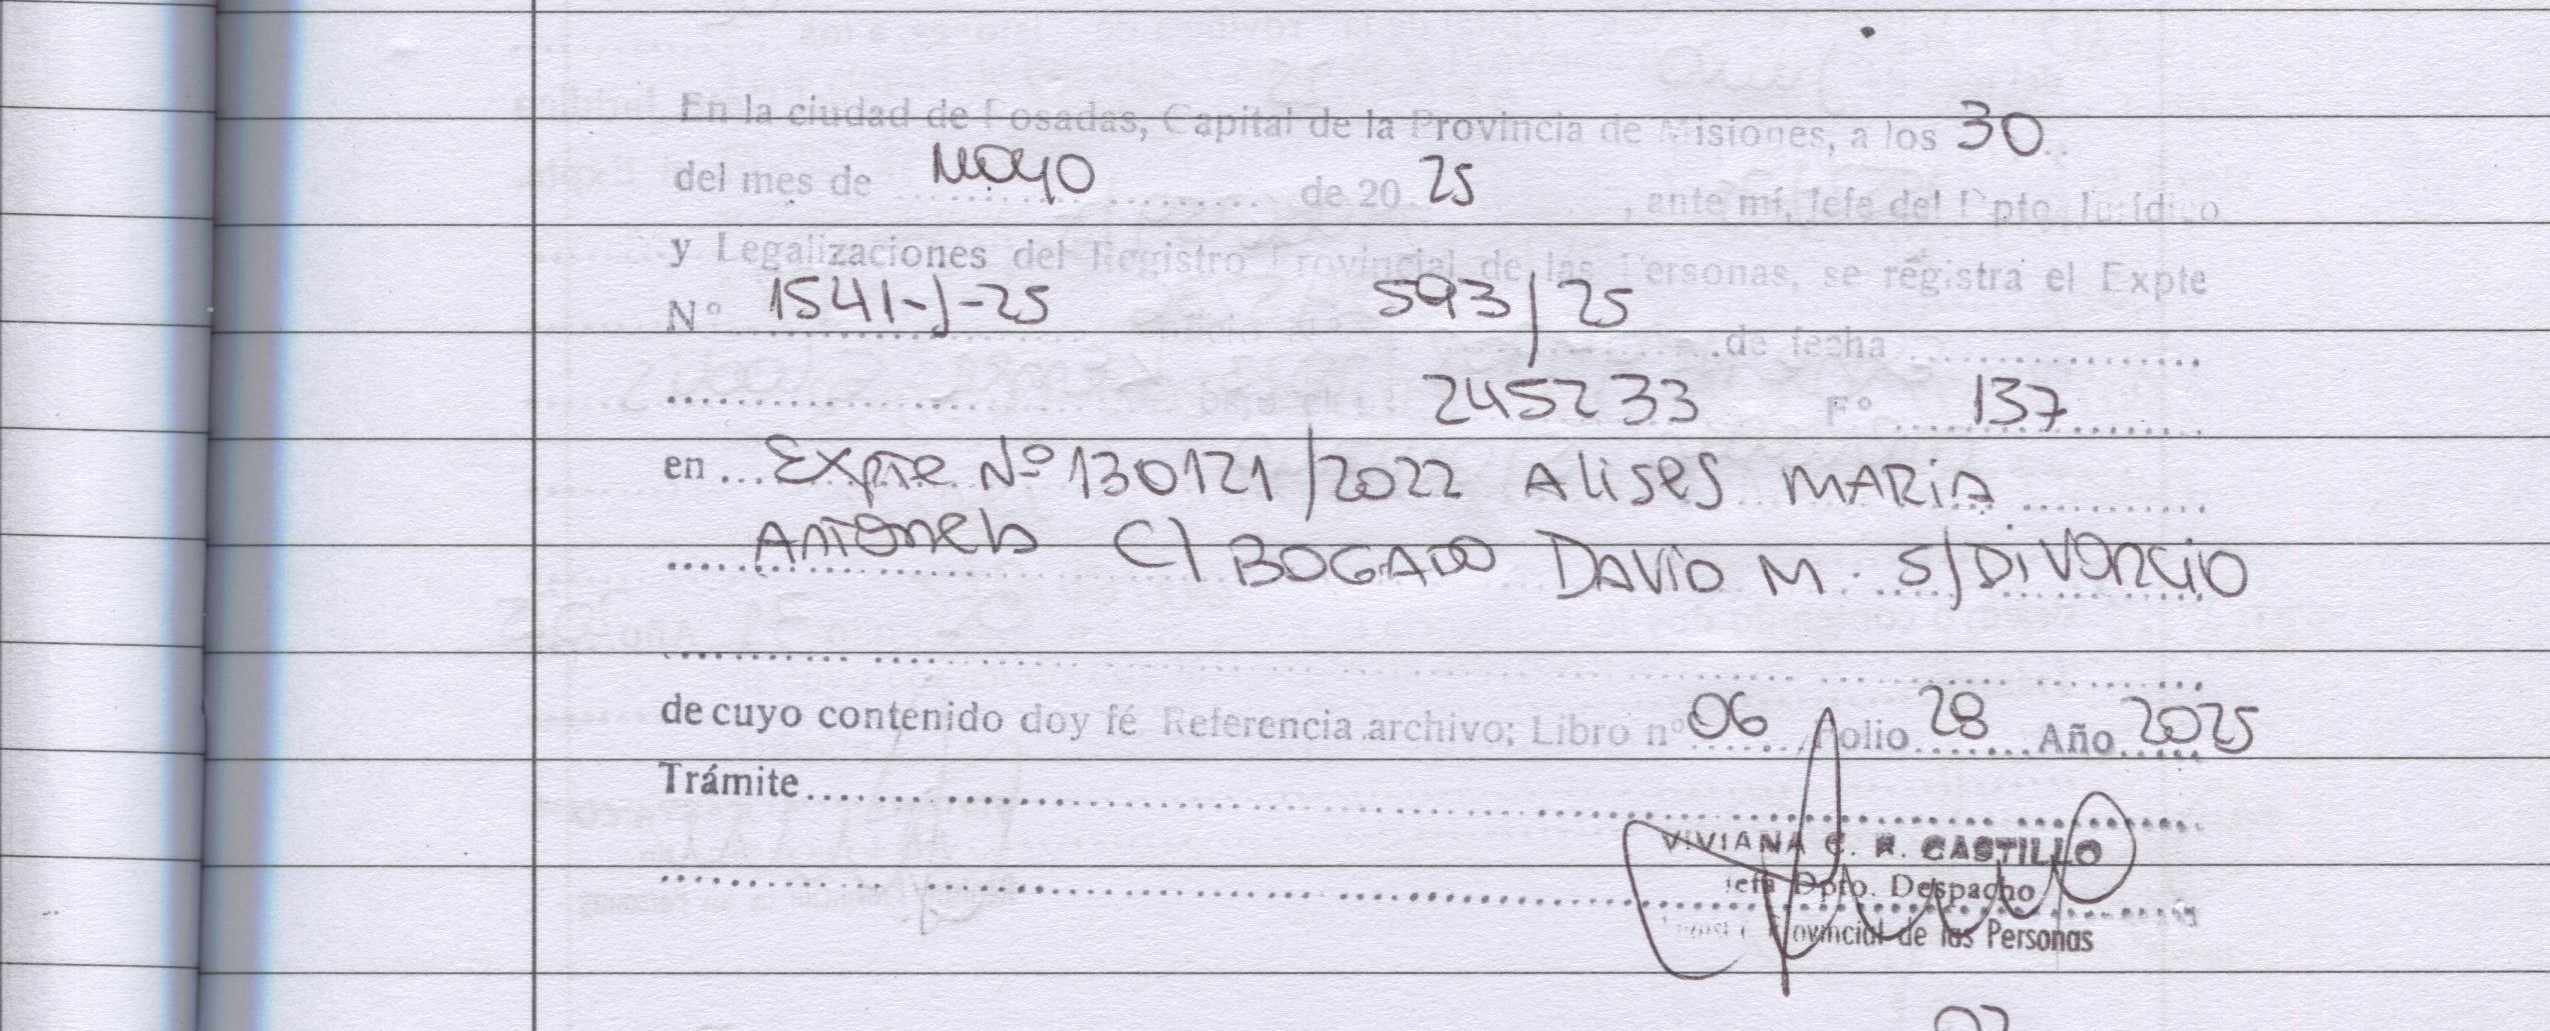 En la ciudad de Posadas, Capital de la Provincia de Misiones, a los 30
del mes de Mayo de 20 25, ante mí, Jefe del Dpto. Jurídico
y Legalizaciones del Registro Provincial de las Personas, se registra el Expte
Nº 1541-J-25 593/25 de fecha
245233 Fº 137
en Expte Nº 130121/2022 Alises MARIA
Antonela C/ BOGADO DAVID M. S/DIVORCIO
de cuyo contenido doy fé Referencia archivo: Libro nº 06 Folio 28 Año 2025
Trámite
VIVIANA C. R. CASTILLO
Jefa Dpto. Despacho
Provincial de las Personas